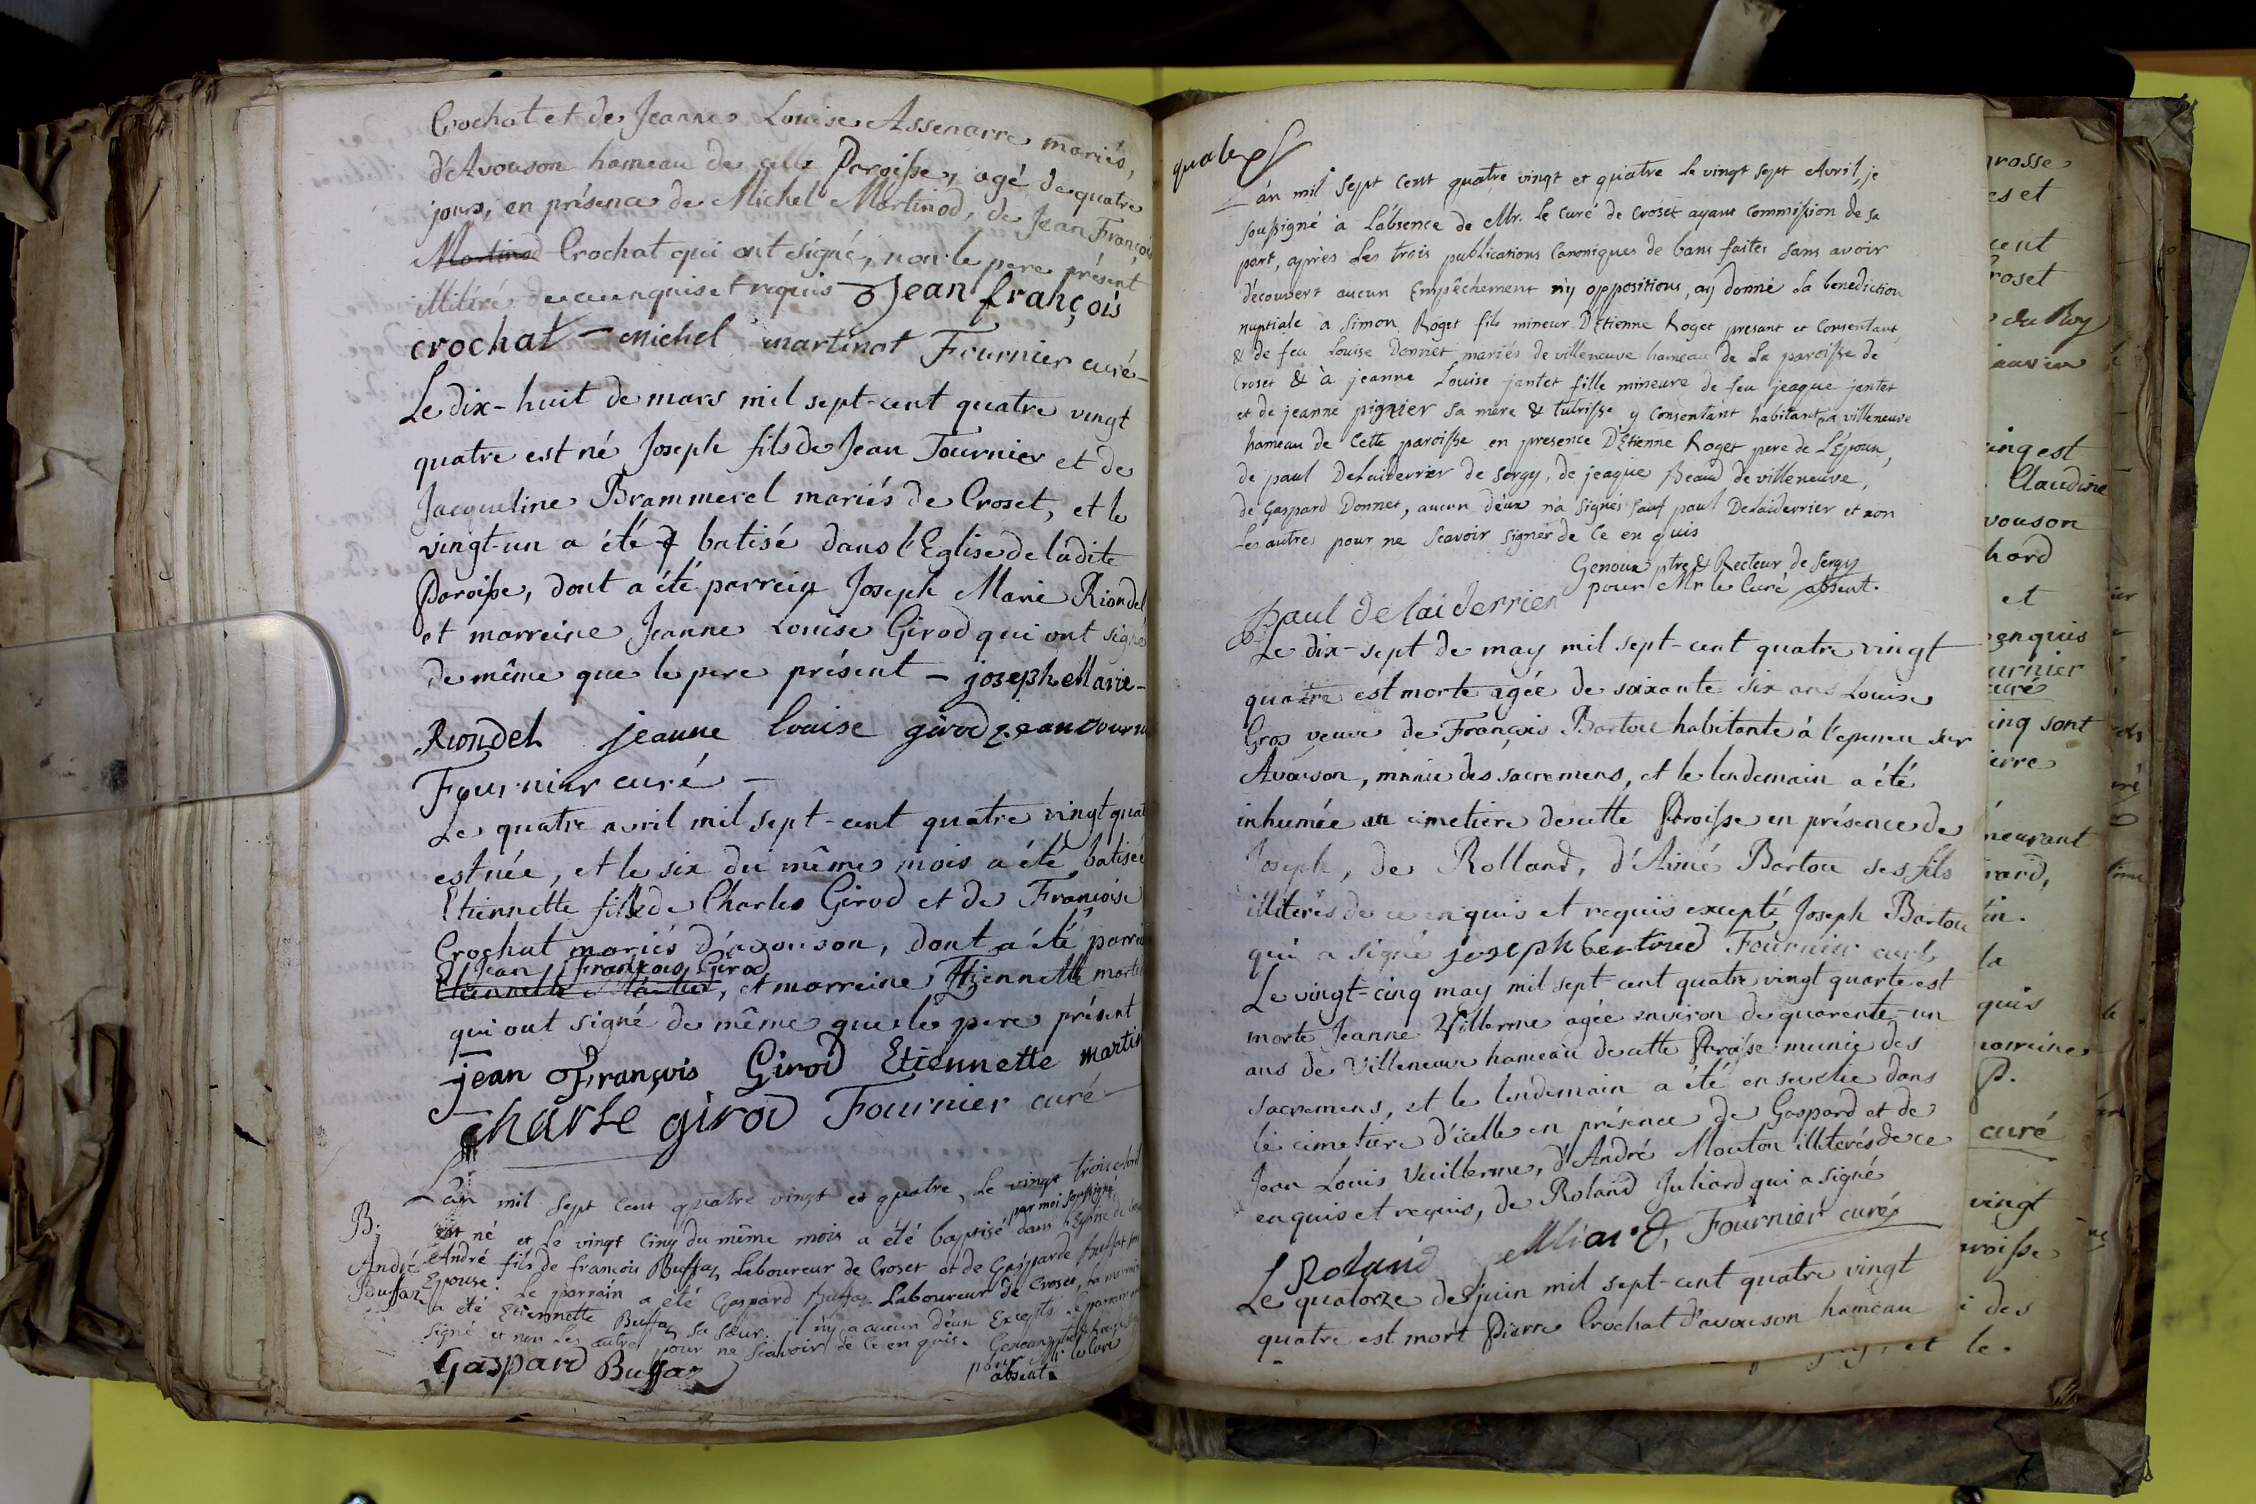 Crochat et de Jeanne Louise Assenarre mariés,
d'Avouson hameau de cette Paroisse, agé de quatre
jours, en présence de Michel Martinod, de Jean François
Martinod Crochat qui ont signé, non le pere présent
illitéré de ce enquis et requis Jean françois
crochat – michel martinot Fournier curé –
Le dix-huit de mars mil sept-cent quatre vingt
quatre est né Joseph fils de Jean Fournier et de
Jacqueline Brammerel mariés de Croset, et le
vingt-un a été batisé dans l'Eglise de ladite
Paroisse, dont a été parrein Joseph Marie Riondel
et marreine Jeanne Louise Girod qui ont signé
de même que le pere présent – joseph Marie –
Riondel jeanne louise girod jean fourni
Fournier curé –
Le quatre avril mil sept-cent quatre vingt quat
est née, et le six du même mois a été batisée
Etiennette fille de Charles Girod et de Francoise
Crochat mariés d'avouson, dont a été parrei
Jean François Girod
Etiennette, et marreine Etiennette marti
qui ont signé de même que le pere présent
jean François Girod Etiennette martin
charle girod Fournier curé
L'an mil sept cent quatre vingt et quatre, Le vingt trois
par moi soussigné,
B. est né et le vingt cinq du même mois a été baptisé dans l'Eglise de
André André fils de francois Buffaz Laboureur de Croset et de Gasparde
Buffaz Epouse. Le parrain a été Gaspard Buffaz Laboureur de Croset, la marraine
a été Etiennette Buffaz sa sœur. n'y a aucun d'eux Excepté le parrain
signé et non les autres pour ne scavoir de ce en quis.
pour Mr le Curé
Gaspard Buffaz absent.
quatre
L'án mil sept cent quatre vingt et quatre le vingt sept Avril, je
soussigné à L'absence de Mr. Le curé de croset ayant commission de sa
part, après Les trois publications Canoniques de bans faites sans avoir
découvert aucun Empêchement n'y oppositions, ay donné La benediction
nuptiale à Simon Roget fils mineur D'Etienne Roget presant et Consentant
& de feu Louise Donnet mariés de villeneuve hameau de La paroisse de
Croset & à jeanne Louise jantet fille mineure de feu jeaque jantet
et de jeanne pignier sa mère & tutrisse y Consentant habitant à villeneuve
hameau de Cette paroisse en presence D'Etienne Roget pere de L'Epoux,
de paul Delaiderrier de sergy, de jeaque Beaud de villeneuve,
de Gaspard Donnet, aucun d'éux n'a signés sauf paul Delaiderrier et non
Les autres pour ne scavoir signer de Ce en quis
Genoux ptre & Recteur de sergy
pour Mr le Curé absent.
paul de lai derrier
Le dix-sept de may mil sept-cent quatre vingt
quatre est morte agée de soixante six ans Louise
Gros veuve de François Bartou habitante à l'epeneu sur
Avouson, munie des sacremens, et le lendemain a été
inhumée au cimetiere de cette Paroisse en présence de
Joseph, de Rolland, d'Aimé Bartou ses fils
illiterés de ce enquis et requis excepté Joseph Bartou
qui a signé joseph bertoud Fournier curé
Le vingt-cinq may mil sept-cent quatre vingt quatre est
morte Jeanne Villerme agée environ de quarente-un
ans de Villeneuve hameau de cette Paroisse munie des
sacremens, et le lendemain a été ensevelie dans
le cimetiere d'icelle en présence de Gaspard et de
Jean Louis Vuillerme, d'André Mouton illiterés de ce
enquis et requis, de Roland Juliard qui a signé
Roland Fournier curé
Le quatorze de juin mil sept-cent quatre vingt
quatre est mort Pierre Crochat d'avouson hameau
rosse
es et
cent
roset
du Roy
ing est
Claudine
vouson
hord
et
enquis
urnier
curé
inq sont
ierre
neurant
rard,
tin.
la
quis
arreine
P.
curé
vingt
roisse
i des
et le